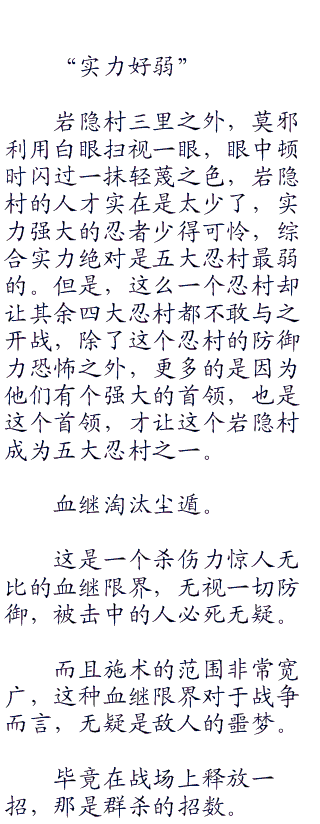 “实力好弱”
岩隐村三里之外，莫邪
利用白眼扫视一眼，眼中顿
时闪过一抹轻蔑之色，岩隐
村的人才实在是太少了，实
力强大的忍者少得可怜，综
合实力绝对是五大忍村最弱
的。但是，这么一个忍村却
让其余四大忍村都不敢与之
开战，除了这个忍村的防御
力恐怖之外，更多的是因为
他们有个强大的首领，也是
这个首领，才让这个岩隐村
成为五大忍村之一。
血继淘汰尘遁。
这是一个杀伤力惊人无
比的血继限界，无视一切防
御，被击中的人必死无疑。
而且施术的范围非常宽
广，这种血继限界对于战争
而言，无疑是敌人的噩梦。
毕竟在战场上释放一
招，那是群杀的招数。